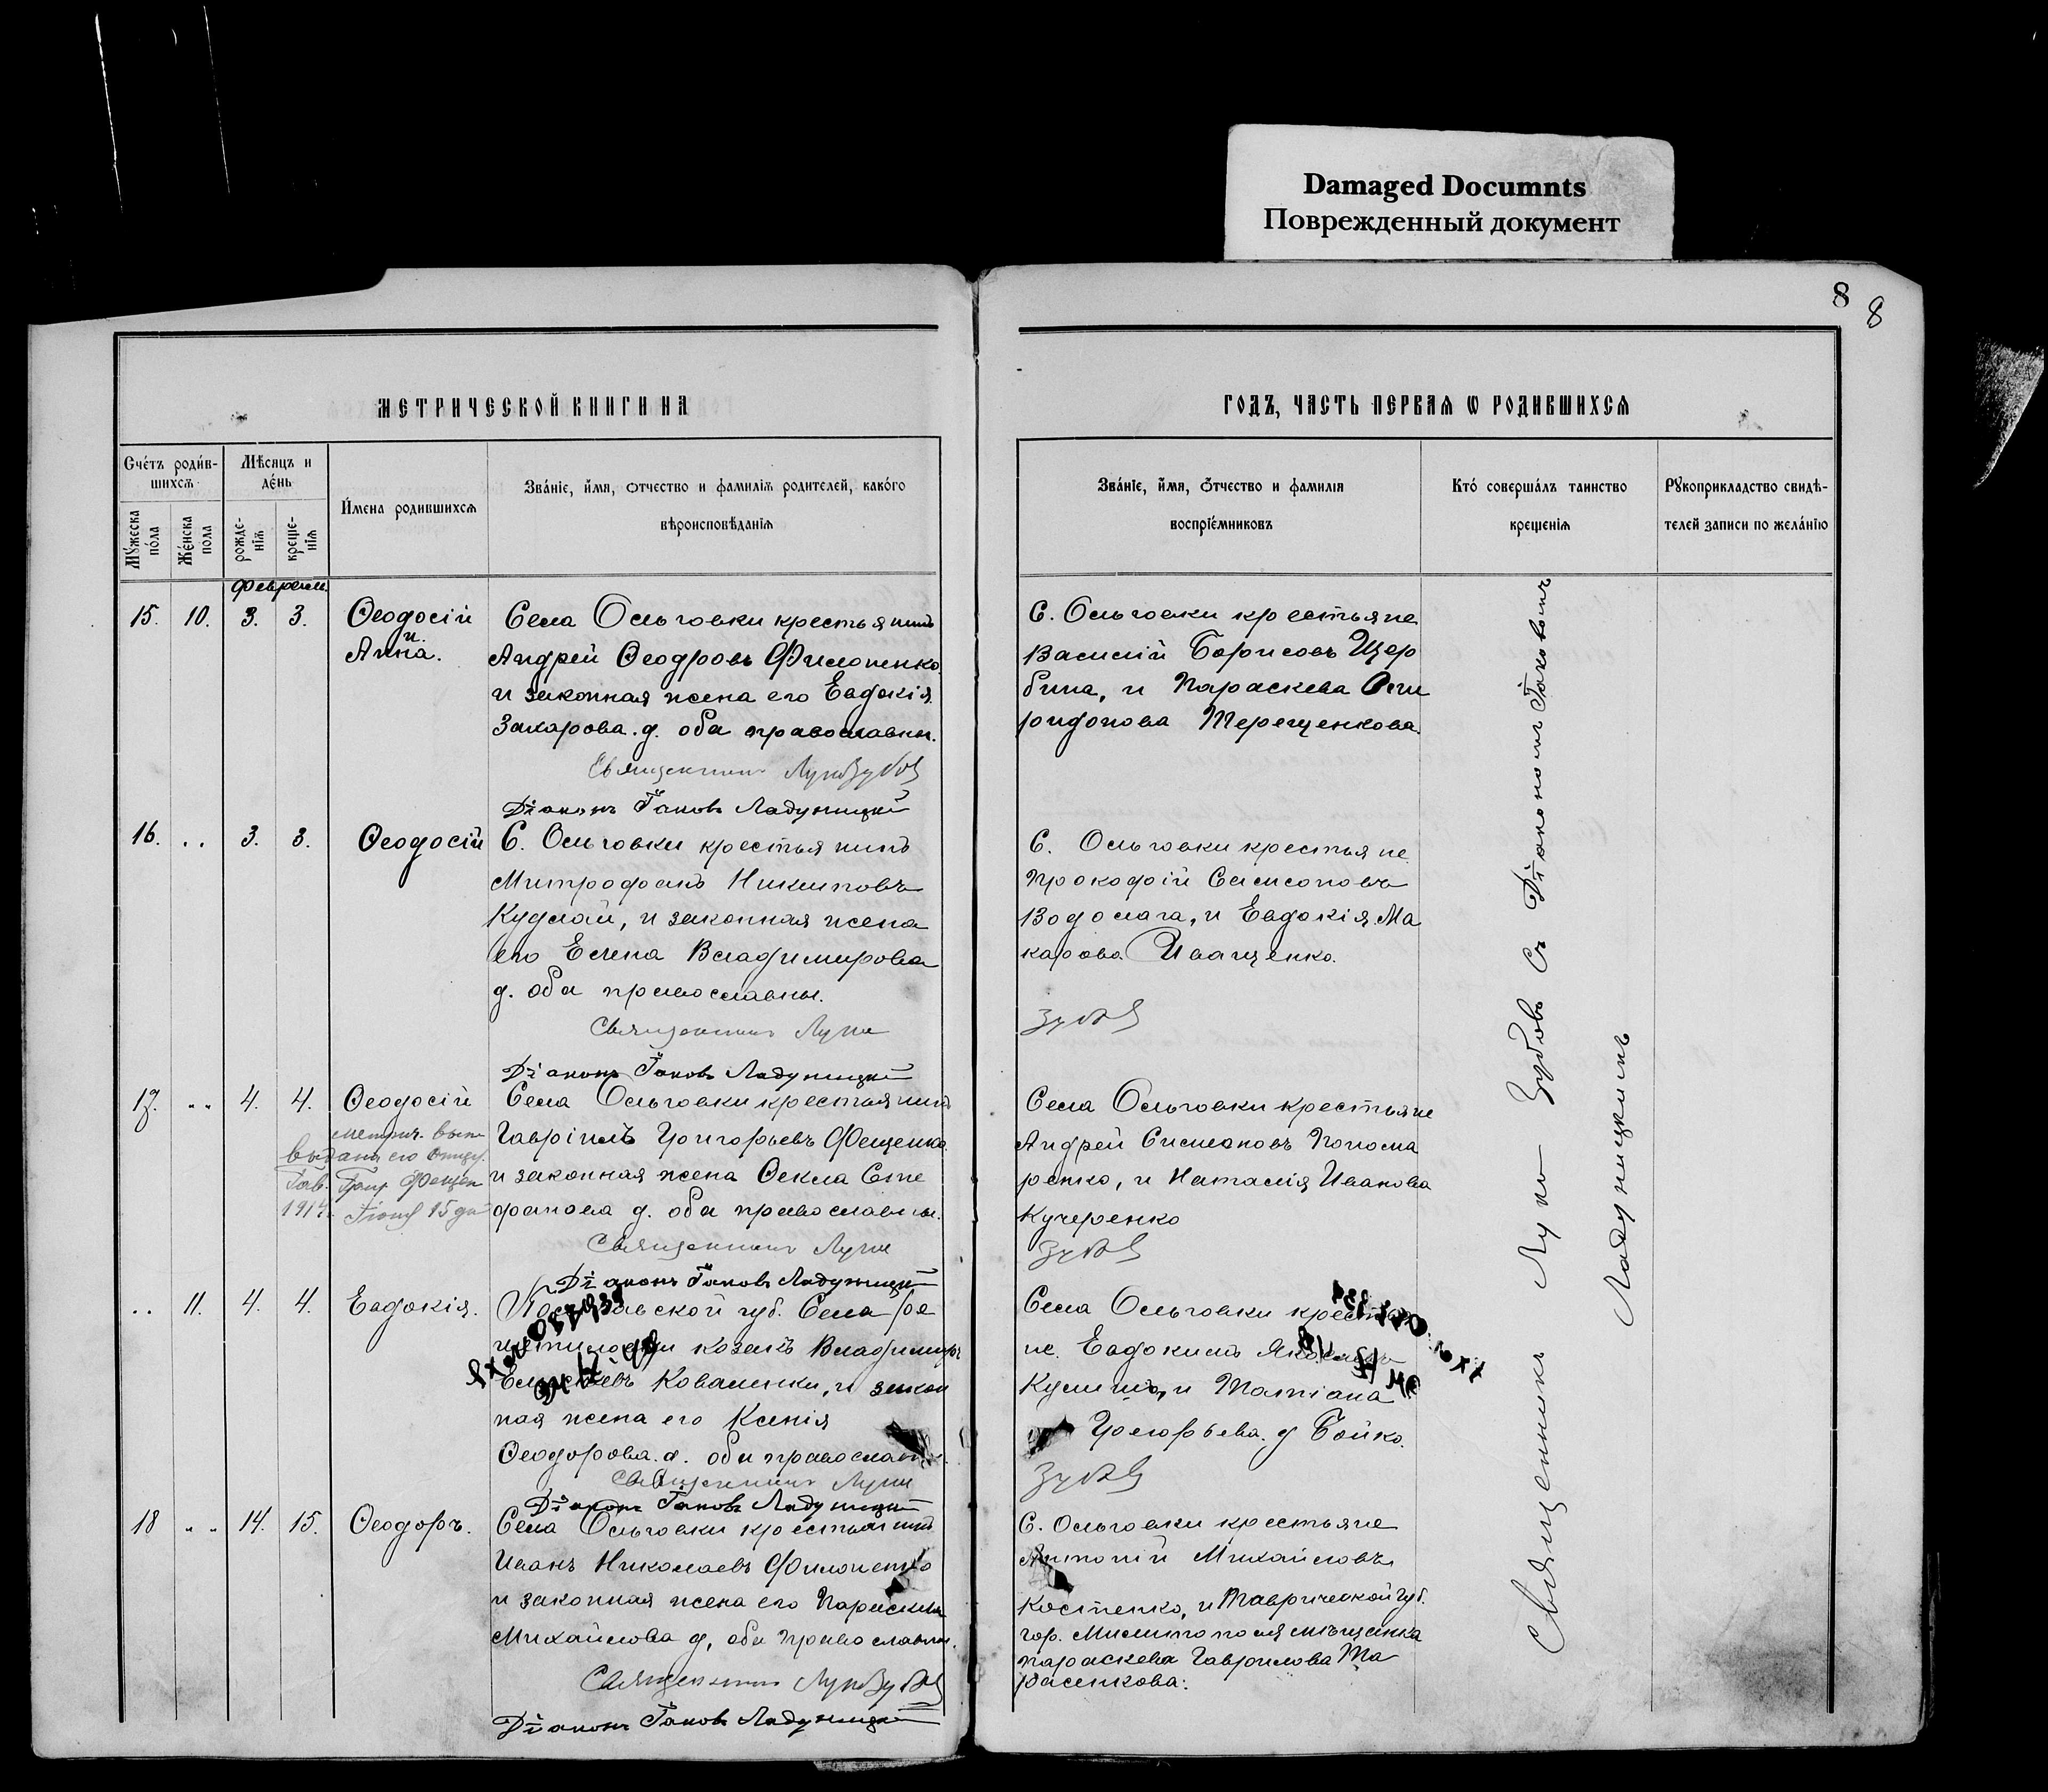 Damaged Documnts
Поврежденный документ
8
8
МЕТРИЧЕСКОЙ КНИГИ НА
ГОДЪ, ЧАСТЬ ПЕРВАЯ Ѡ РОДИВШИХСЯ
Счётъ родившихся
Мужеска пола
Женска пола
Мѣсяцъ и день
рожденія
крещенія
Имена родившихся
Званіе, имя, отчество и фамилія родителей, какого
вѣроисповѣданія
Званіе, имя, отчество и фамилія
воспріемниковъ
Кто совершалъ таинство
крещенія
Рукоприкладство свидѣ-
телей записи по желанію
Февраль.
15. 10. 3. 3.
Ѳеодосій
и
Анна.
Села Ольговки крестьянинъ
Андрей Ѳеодровъ Филоненко
и законная жена его Евдокія
Захарова. д. оба православны.
Священникъ Лука Зубовъ
Діаконъ Іаковъ Ладужицкій
С. Ольговки крестьяне
Василій Борисовъ Щер
бина, и Параскева Спи
ридонова Терещенкова.
16. .. 3. 3.
Ѳеодосій
С. Ольговки крестьянинъ
Митрофанъ Никитовъ
Кудлай, и законная жена
его Елена Владимирова
д. оба православны.
Священникъ Лука
Діаконъ Іаковъ Ладужицкій
С. Ольговки крестьяне
Прокофій Самсоновъ
Водолага, и Евдокія Ма
карова Иващенко.
Зубовъ
17. .. 4. 4.
Ѳеодосій
метрич. вып
выдана его отцу
Гавр. Григ Фещен
1914. Іюня 15 дня
Села Ольговки крестьянинъ
Гавріилъ Григорьевъ Фещенко
и законная жена Ѳекла Сте
фанова д. оба православны.
Священникъ Лука
Діаконъ Іаковъ Ладужицкій
Села Ольговки крестьяне
Андрей Симеоновъ Понома
ренко, и Наталія Иванова
Кучеренко
Зубовъ
.. 11. 4. 4.
Евдокія.
Полтавской губ. Села Ре
козакъ Владимиръ
Коваленко, и закон
ная жена его Ксенія
Ѳеодорова. д. оба православны.
Священникъ Лука
Діаконъ Іаковъ Ладужицкій
Села Ольговки крестья
не. Евдокимъ Яковлевъ
Кулишъ, и Татіана
Григорьева. д Бойко.
Зубовъ
18 .. 14. 15.
Ѳеодоръ.
Села Ольговки крестьянинъ
Иванъ Николаевъ Филоненко
и законная жена его Параскева
Михайлова д, оба православны.
Священникъ Лука Зубовъ
Діаконъ Іаковъ Ладужицкій
С. Ольговки крестьяне
Антоній Михайловъ
Костенко, и Таврической губ.
гор. Милитополя мѣщанка
Параскева Гаврилова Та
расенкова.
Священникъ Лука Зубовъ Съ Діакономъ Іаковомъ
Ладужицкимъ